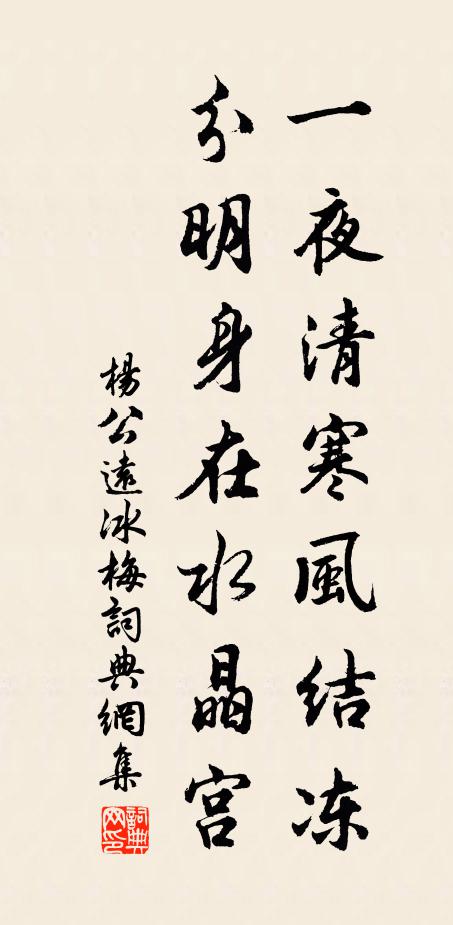 一夜清寒風结冻
分明身在水晶宫
楊公遠冰梅詞典網集
詞典網印